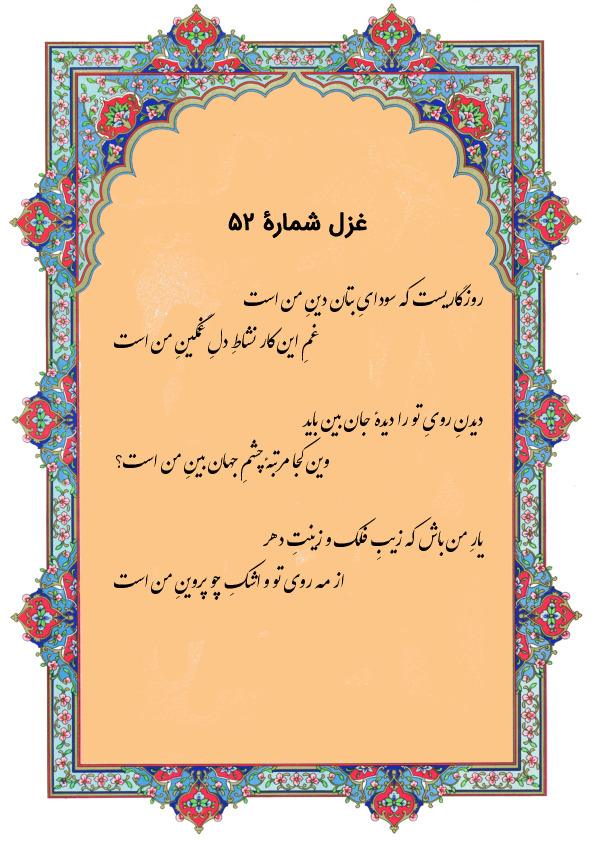 غزل شمارهٔ ۵۲
روزگاریست که سودایِ بتان دینِ من است
غمِ این کار نشاطِ دلِ غمگینِ من است
دیدنِ رویِ تو را دیدهٔ جان بین باید
وین کجا مرتبهٔ چشمِ جهان بینِ من است؟
یارِ من باش که زیبِ فلک و زینتِ دهر
از مه روی تو و اشکِ چو پروینِ من است